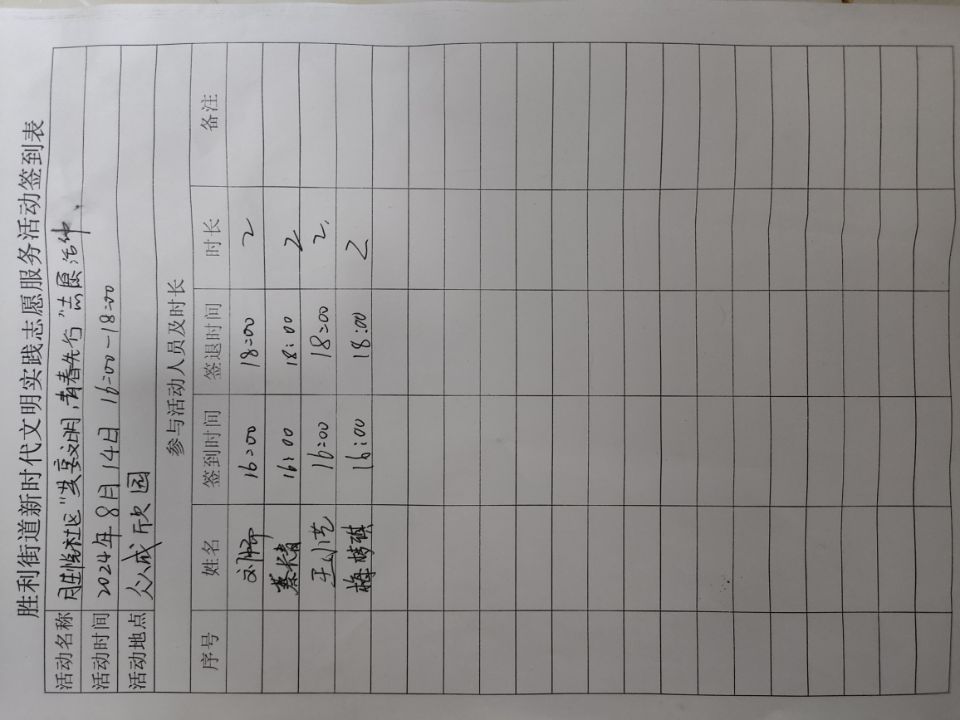 胜利街道新时代文明实践志愿服务活动签到表
活动名称 胜悦社区"共享文明,青春先行"志愿活动、
活动时间 2024年8月14日 16:00-18:00
活动地点 众成欣园
参与活动人员及时长
序号 姓名 签到时间 签退时间 时长 备注
刘 16:00 18:00 2
蔡长青 16:00 18:00 2
王 艺 16:00 18:00 2.
梅 琪 16:00 18:00 2